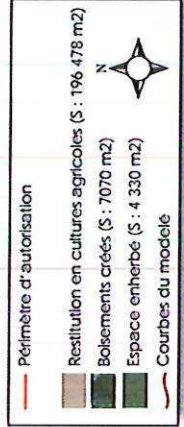 Périmètre d'autorisation
Restitution en cultures agricoles (S : 196 478 m2)
Boisements créés (S : 7070 m2)
Espace enherbé (S : 4 330 m2)
Courbes du modelé
N